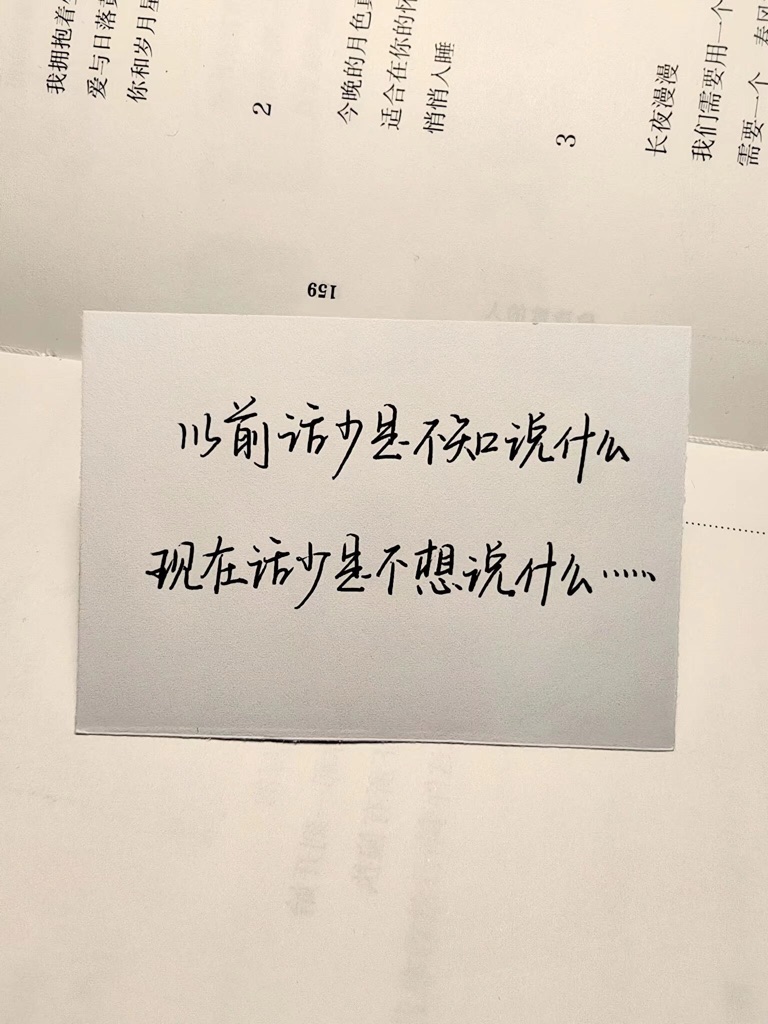 我拥抱着
爱与日落
你和岁月星
2
今晚的月色真
适合在你的怀
悄悄入睡
3
长夜漫漫
我们需要用一个
需要一个 春风
159
以前话少是不知说什么
现在话少是不想说什么……